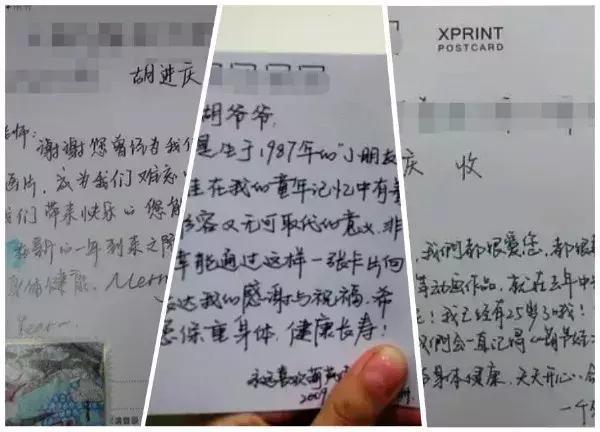 胡进庆
老师:
谢谢您曾经为我们
画片,成为我们难忘
我们带来快乐
在新的一年到来之际
身体健康. Merr
胡爷爷,
是生于1987年的"小朋友
在我的童年记忆中有着
形容又无可取代的意义,非
能通过这样一张卡片向
表达我的感谢与祝福,希
您保重身体,健康长寿!
永远喜欢葫芦
2009
XPRINT
POSTCARD
庆 收
,我們都很愛您,都很
动画作品,就在去年中
!我已经有25岁了哦!
我們会一直记得《葫芦娃
身体健康,天天开心,
一个